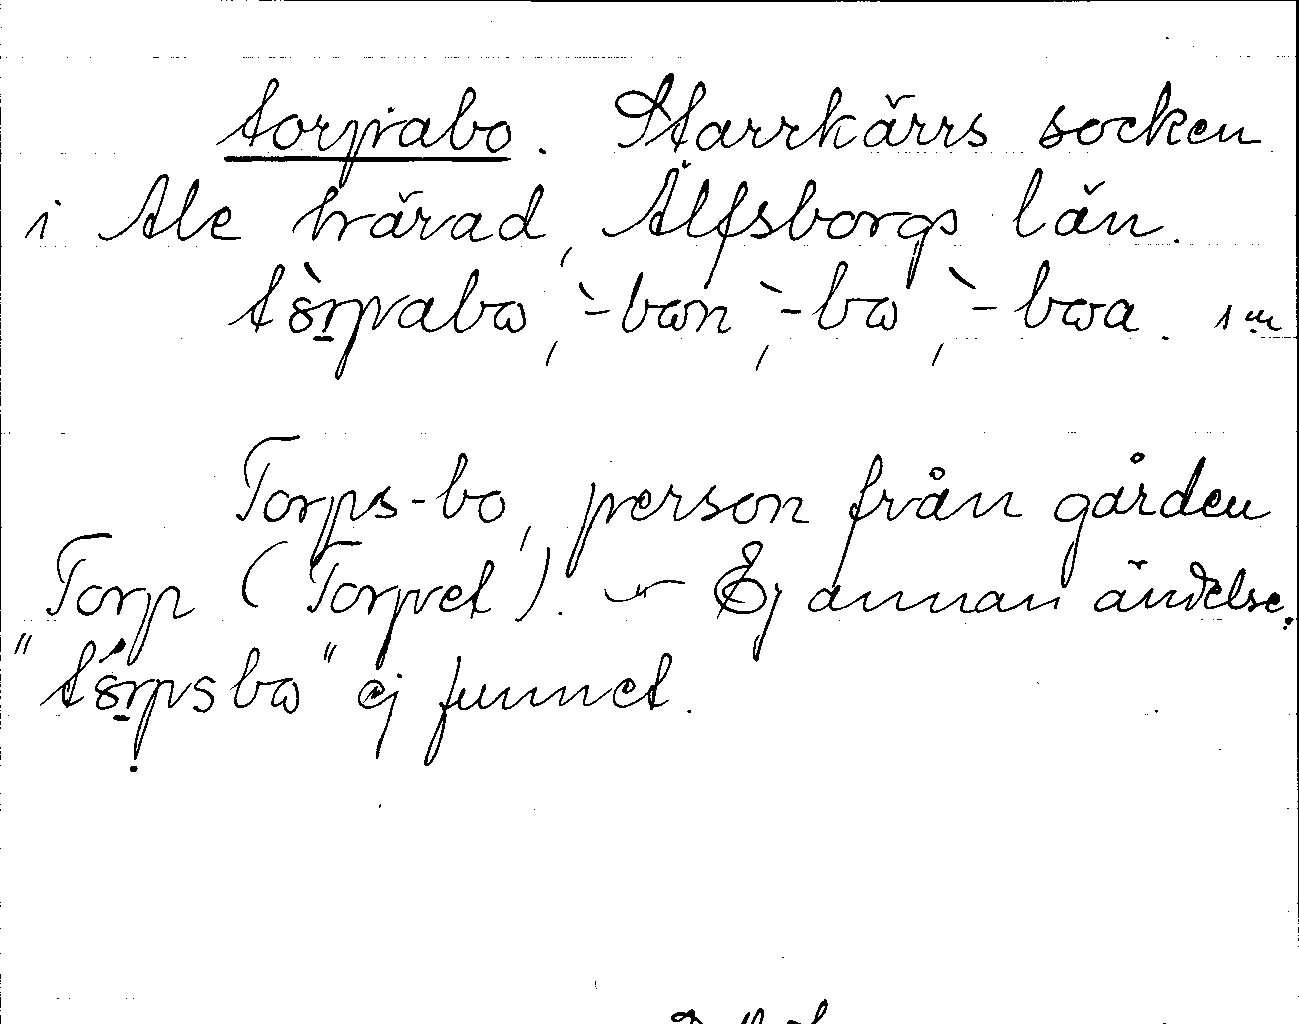 torpabo. Starrkärrs socken
i Ale härad, Älfsborgs län.
tòrpabω, `-bωn, `-bω, `-bωa. 1 m
Torps-bo, person från gården
Torp (Torpet). — Ej annan ändelse.
"tórpsbω" ej funnet.